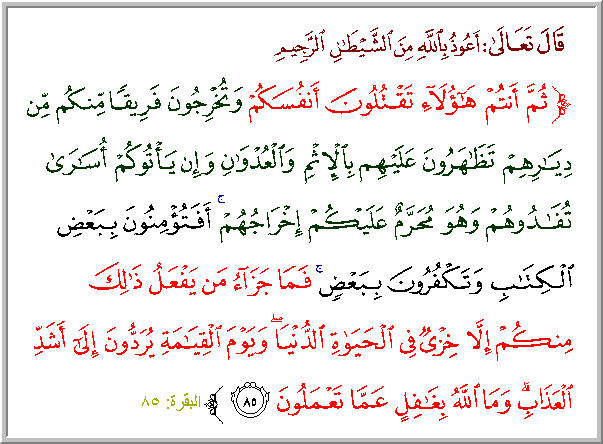 قَالَ تَعَالَىٰ: أَعُوذُ بِٱللَّهِ مِنَ ٱلشَّيْطَانِ ٱلرَّجِيمِ
﴿ ثُمَّ أَنتُمْ هَٰٓؤُلَآءِ تَقْتُلُونَ أَنفُسَكُمْ وَتُخْرِجُونَ فَرِيقًا مِّنكُم مِّن
دِيَٰرِهِمْ تَظَٰهَرُونَ عَلَيْهِم بِٱلْإِثْمِ وَٱلْعُدْوَٰنِ وَإِن يَأْتُوكُمْ أُسَٰرَىٰ
تُفَٰدُوهُمْ وَهُوَ مُحَرَّمٌ عَلَيْكُمْ إِخْرَاجُهُمْ ۚ أَفَتُؤْمِنُونَ بِبَعْضِ
ٱلْكِتَٰبِ وَتَكْفُرُونَ بِبَعْضٍ ۚ فَمَا جَزَآءُ مَن يَفْعَلُ ذَٰلِكَ
مِنكُمْ إِلَّا خِزْىٌ فِى ٱلْحَيَوٰةِ ٱلدُّنْيَا ۖ وَيَوْمَ ٱلْقِيَٰمَةِ يُرَدُّونَ إِلَىٰٓ أَشَدِّ
ٱلْعَذَابِ ۗ وَمَا ٱللَّهُ بِغَٰفِلٍ عَمَّا تَعْمَلُونَ ٨٥ ﴾ البقرة: ٨٥